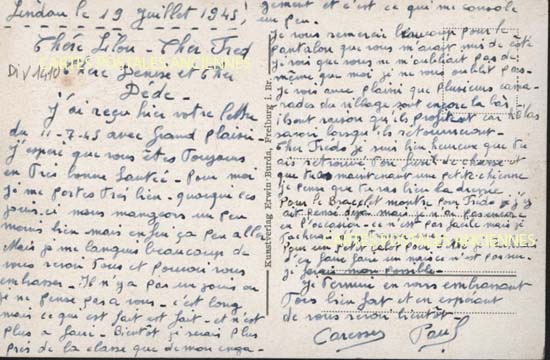 Lindau le 19 Juillet 1945
Chére Lilou - Cher Fredo
CARTES POSTALES ANCIENNES
DiV1410
Chére Denise et Cher
Dédé -
J'ai reçu hier votre lettre
du 11-7-45 avec Grand plaisir
J'espére que vous êtes Toujours
en Très bonne Santé - Pour moi
je me portes Très bien - quoique ces
jours-ci nous mangeons un peu
moins bien - mais enfin ça peu aller
Mais je me languis beaucoup de
vous revoir Tous et pouvoir vous
embrasser - Il n'y a pas un jour ou
je ne pense pas a vous - c'est long
mais ce qui est fait est fait - et n'est
plus a faire - Bientôt je serais plus
près de la classe que de mon enga-
Kunstverlag Erwin Burda, Freiburg i. Br.
gement et c'est ce qui me console
un peu -
Je vous remercie beaucoup pour le
pantalon que vous m'avait mis de côté
J'vois que vous ne m'oubliait pas de
même que moi je ne vous oublie pas -
J'vois avec plaisir que plusieurs cama-
rades du village sont encore la bas
ils ont raison qu'ils profitent en
savoir lorsqu'ils retourneront -
Cher Fredo je suis bien heureux que tu
ais retrouvé ton de chasse et
que tu as maintenant un petite chienne
je pense que tu vas bien la dresse
Pour le Bracelet montre pour Fredo - j'y
ait pensé déja mais je n'ai pas encore
eu l'occasion - ce n'est pas facile mais j'
CARTES POSTALES ANCIENNES
Pour un
faire mais ce n'est pas
je ferais mon possible -
Je Termine en vous embrassant
Tous bien fort et en espérant
de vous revoir bientôt -
Caresses Paul